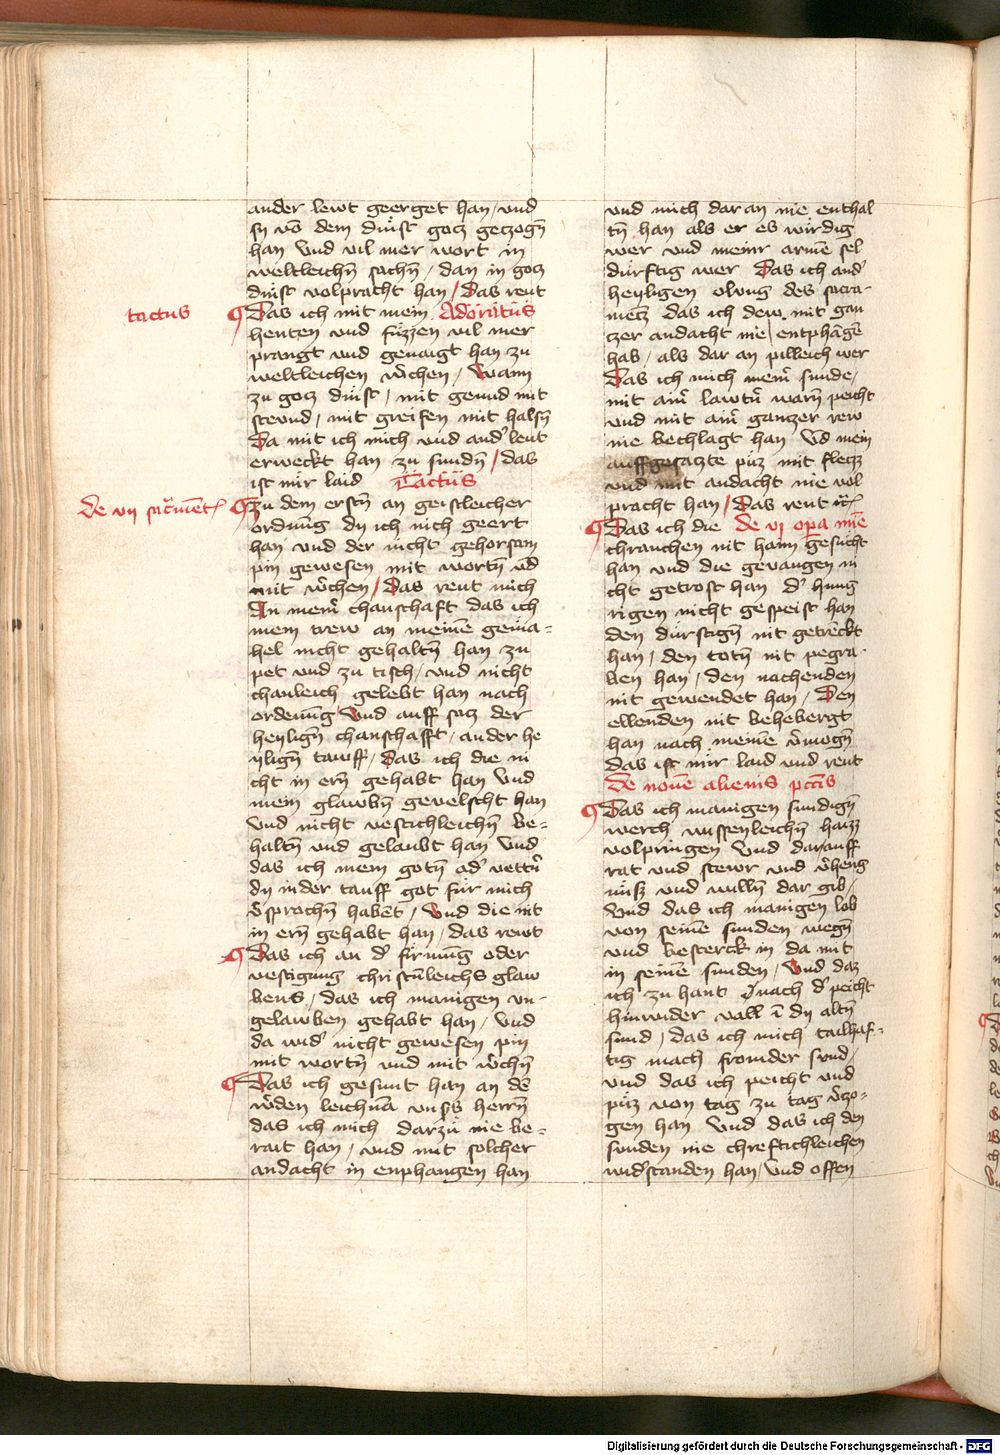 ander lewt geerget han / und
sy vō dem dinst gocz geczogn̄
han Und vil mer wort in
weltleichn̄ sachn̄ / dan in gocz
dinst volpracht han / Das reut
tactus
Das ich mit mein Adoratus
henten und füzzen vil mer
prangt und genaigt han zu
weltleichen w̄chen / Wann
zu gocz dinst / mit gemud mit
steund / mit greifen mit halsn̄
Da mit ich mich und and' leut
erweckt han zu sundn̄ / das
ist mir laid Tactus
De vii sacmēt
zu dem erstn̄ an geistleicher
ordnūg dy ich nich geert
han und der nicht gehorsam
pin gewesen mit wortn̄ und
mit w̄chen / Das reut mich
In mem̄ chanschaft das ich
mein trew an meinē gema=
hel nicht gehaltn̄ han zu
pet und zu tisch / und nicht
chanleich gelebt han nach
ordenūg Und auff sacz der
heylign̄ chanschafft / an der he
ylign̄ tawff / Das ich die ni
cht in ern̄ gehabt han Und
mein glawbn̄ gevelscht han
Und nicht vestichleichn̄ be=
haltn̄ und gelaubt han Und
das ich mein gotn̄ ad' vettn̄
dy in der tauff got für mich
v̄sprochn̄ habēt / Und die nit
in ern̄ gehabt han / das rewt
Das ich an d' firmūg oder
vestigung christnleichs glaw
bens / das ich manigen un-
gelawben gehabt han / Und
da wid' nicht gewesen pin
mit wortn̄ und mit w̄chn̄
Das ich gesunt han an dē
w̄den leichnā unss herrn̄
das ich mich darzu nie be=
rait han / und mit solcher
andacht in enphangen han
und mich dar an nie enthal
tn̄ han als er es wirdig
wer und meinr armē sel
dürftig wer Das ich and'
heyligen olung des sacra-
mētz das ich dew mit gan
czer andacht nie entphāgē
hab / als dar an pilleich wer
Das ich mich mein̄ sunde /
mit aim̄ lawtn̄ warn̄ peicht
und mit aim̄ ganczer rew
nie bechlagt han Vd mein
auffgesaczte půz mit flecz
und mit andacht nie vol
pracht han / Das reut ic̄
Das ich die De vi opa mīe
chranchen nit haim gesucht
han und die gevangen ni
cht getrost han d' hung
rigen nicht gespeist han
den dürstign̄ nit getrēckt
han / den totn̄ nit pegra-
ben han / den nachenden
nit gewendet han / Den
ellenden nit behebergt
han nach meinē v̄mogn̄
das ist mir laid und reut
De novē alienis pctīs
Das ich manigen sundign̄
werch wissenleichn̄ haizz
volpringen Und darauff
rat und stewr und v̄heng
nüß und willn̄ dar gib /
Und das ich manigen lob
von seinē sunden wegn̄
und besterck in da mit
in seinē sunden / Und daz
ich zu hant nach d' peicht
hinwider vall ī dy altn̄
sund / das ich mich tailhaf=
tig mach fromder sund /
und das ich peicht und
půz von tag zu tag v̄czo=
gen han Und das ich den
sunden nie chreftichleichen
wid'standen han / Und offen